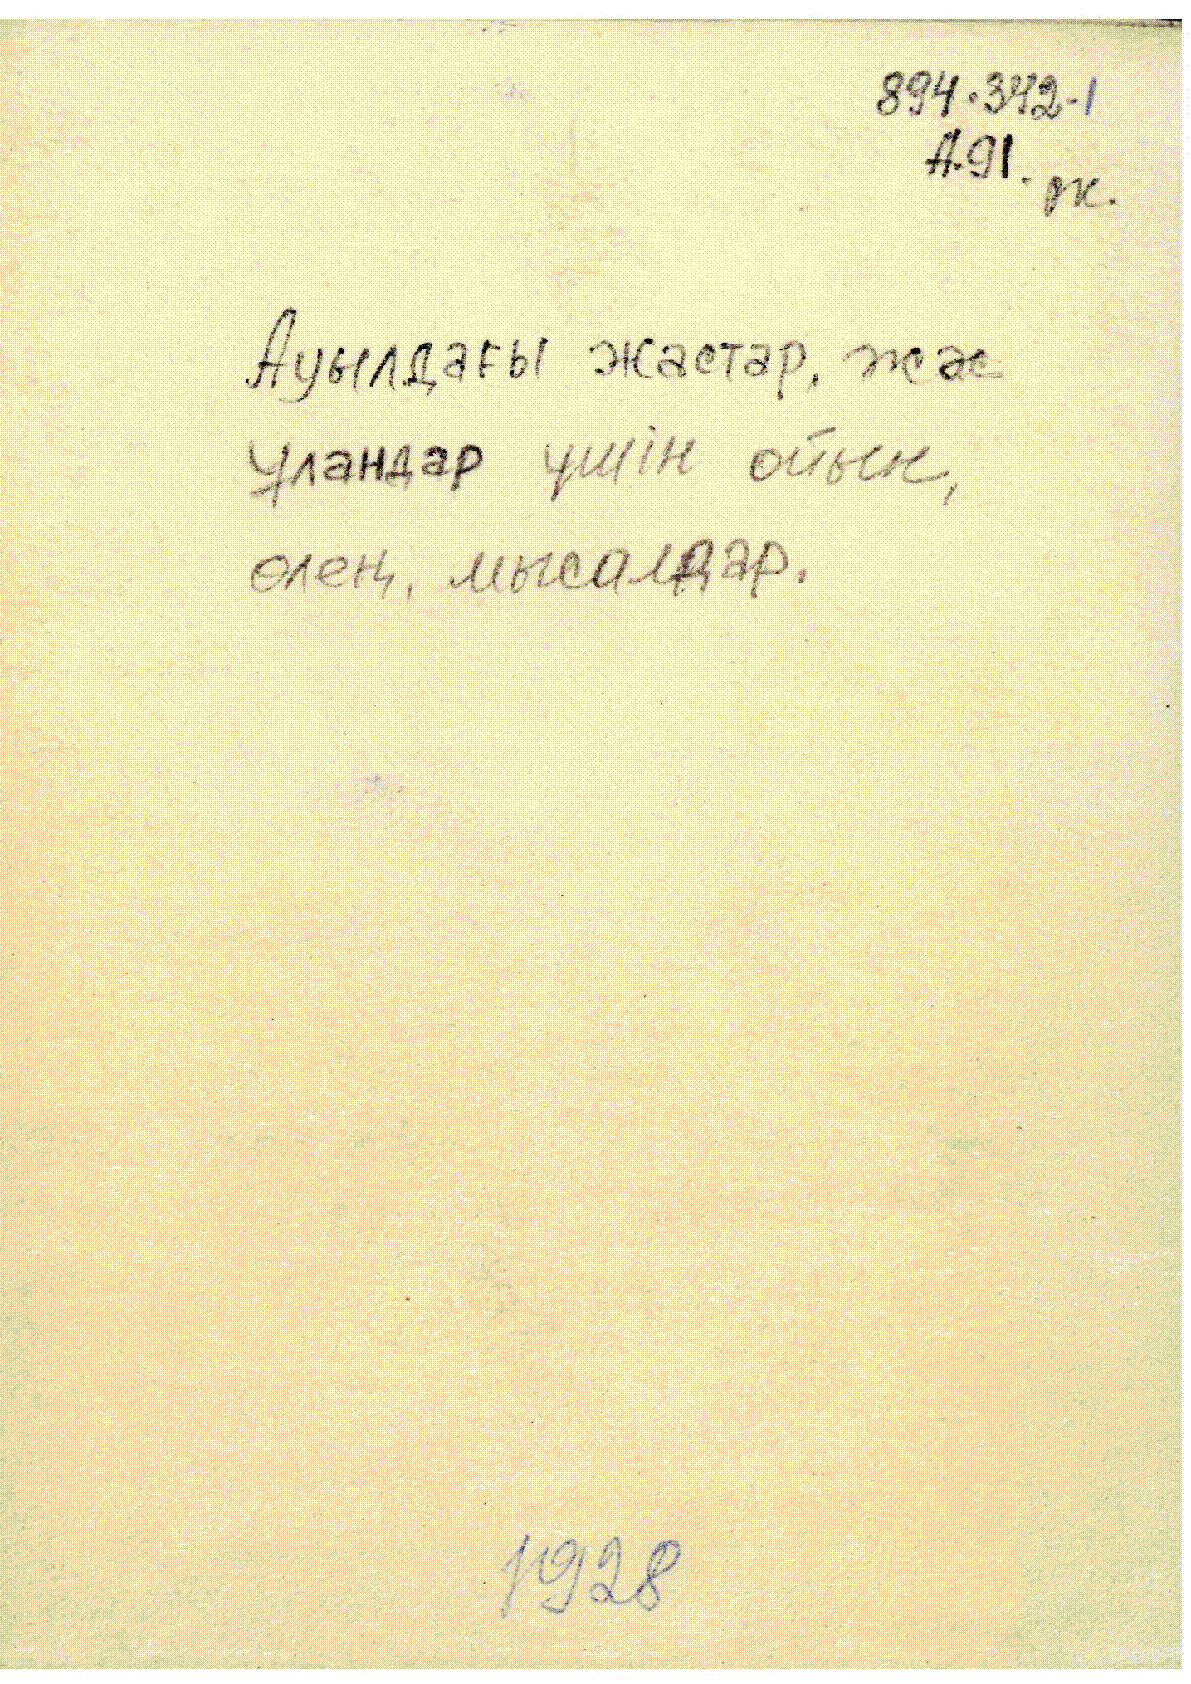 894.342-1
А.91. рк.
Ауылдағы жастар, жас
ұландар үшін ойын,
өлең, мысалдар.
1928